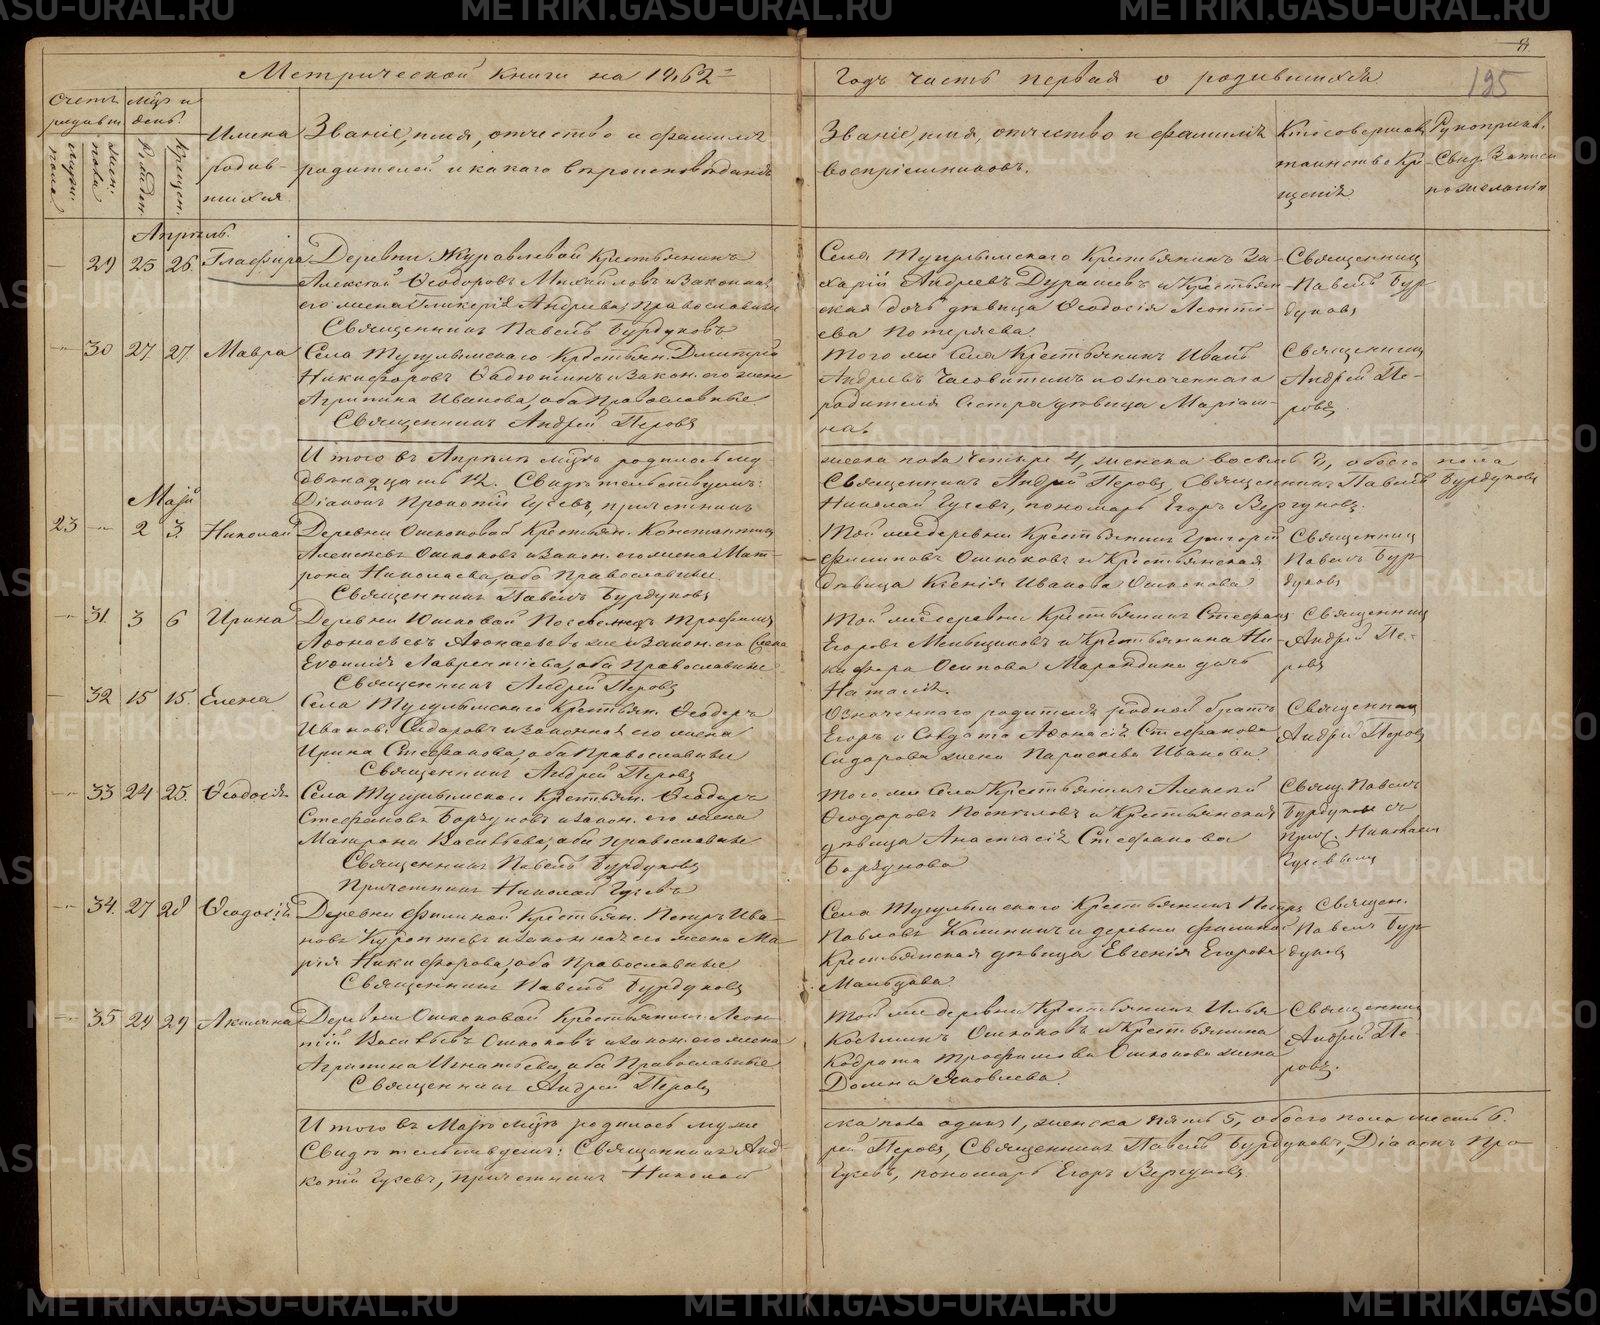 Метрической книги на 1862й
Годъ часть первая о родившихся
195
Счетъ родивш.
Мцъ и день
Мужес. пола
Женс. пола
Рожден.
Крещен.
Имена родив-
шихся
Званіе, имя, отчество и фамилія
родителей и какаго вероисповѣданія
Званіе, имя, отчество и фамилія
воспріемниковъ.
Кто совершалъ
таинство Кре
щенія
Рукоприклад.
Свид. Записи
по желанію
Апрель.
29 25 26 Глафира
Деревни Журавлевой Крестьянинъ
Алексѣй Ѳеодоровъ Михайловъ и законная
его жена Гликерія Андреева, православные
Священникъ Павелъ Бурдуковъ
Села Тугулымскаго Крестьянинъ За-
харій Андреевъ Дурашевъ и Крестьян
ская дочь дѣвица Ѳеодосія Леонті-
ева Потеряева
Священник
Павелъ Бур
дуковъ
30 27 27 Мавра
Села Тугулымскаго Крестьян. Дмитрій
Никифоровъ Овдюшинъ и закон. его жена
Агрипина Иванова, оба Православные
Священникъ Андрей Перовъ
Того же Села Крестьянинъ Иванъ
Андреевъ Часовитинъ и означеннаго
родителя Сестра дѣвица Маріам-
на.
Священник
Андрей Пе-
ровъ
Итого въ Апрелѣ мцѣ родилось му
двѣнадцать 12. Свидѣтельствуемъ:
Діаконъ Прокопій Гусевъ, причетникъ
жеска пола четыре 4, женска восемь 8, обоего пола
Священникъ Андрей Перовъ, Священникъ Павелъ Бурдуковъ
Николай Гусевъ, пономарь Егоръ Вергуновъ.
Маій
23 2 3 Николай
Деревни Ошкоковой Крестьян. Константинъ
Алексѣевъ Ошкоковъ и закон. его жена Мат-
рона Николаева, оба Православные
Священникъ Павелъ Бурдуковъ
Той же деревни Крестьянинъ Григорій
Филиповъ Ошкоковъ и Крестьянская
дѣвица Ксенія Иванова Ошкокова
Священник
Павелъ Бур-
дуковъ
31 3 6 Ирина
Деревни Юшковой Поселенецъ Трофимъ
Аѳонасьевъ Аѳонасьевъ же и закон. его жена
Евѳимія Лаврентіева, оба Православные
Священникъ Андрей Перовъ
Той же деревни Крестьянинъ Стефанъ
Егоровъ Меньщиковъ и Крестьянина Ни-
кифора Осипова Марандина дочь
Наталія.
Священник
Андрей Пе-
ровъ
32 15 15 Елена
Села Тугулымскаго Крестьян. Ѳеодоръ
Ивановъ Сидоровъ и законная его жена
Ирина Стефанова, оба Православные
Священникъ Андрей Перовъ
Означеннаго родителя родной братъ
Егоръ и Солдата Аѳонасія Стефанова
Сидорова жена Параскева Иванова
Священник
Андрей Перовъ
33 24 25 Ѳеодосія
Села Тугулымскаго Крестьян. Ѳеодоръ
Стефановъ Боркуновъ и закон. его жена
Матрона Васильева, оба православные
Священникъ Павелъ Бурдуковъ
Причетникъ Николай Гусевъ
Того же Села Крестьянинъ Алексѣй
Ѳеодоровъ Поспѣловъ и Крестьянская
дѣвица Анастасія Стефанова
Боркунова
Свящ. Павелъ
Бурдуковъ съ
прич. Николаем
Гусевымъ
34 27 28 Ѳеодосія
Деревни Филиной Крестьян. Петръ Ива-
новъ Куроптевъ и законная его жена Ма-
рія Никифорова, оба православные
Священникъ Павелъ Бурдуковъ
Села Тугулымскаго Крестьянинъ Петръ
Павловъ Калининъ и деревни Филиной
Крестьянская дѣвица Евгенія Егорова
Мальцова
Священ.
Павелъ Бур
дуковъ
35 29 29 Акилина
Деревни Ошкоковой Крестьянинъ Леон-
тій Васильевъ Ошкоковъ и закон. его жена
Агрипина Игнатьева, оба Православные
Священникъ Андрей Перовъ
Той же деревни Крестьянинъ Илья
Косьминъ Ошкоковъ и Крестьянина
Кодрата Трофимова Ошкокова жена
Домна Яковлева.
Священник
Андрей Пе-
ровъ.
Итого въ Маіѣ мцѣ родилось муже
Свидѣтельствуемъ: Священникъ Анд-
копій Гусевъ, причетникъ Николай
ска пола одинъ 1, женска пять 5, обоего пола шесть 6.
рей Перовъ, Священникъ Павелъ Бурдуковъ, Діаконъ Про-
Гусевъ, пономарь Егоръ Вергуновъ.
METRIKI.GASO-URAL.RU